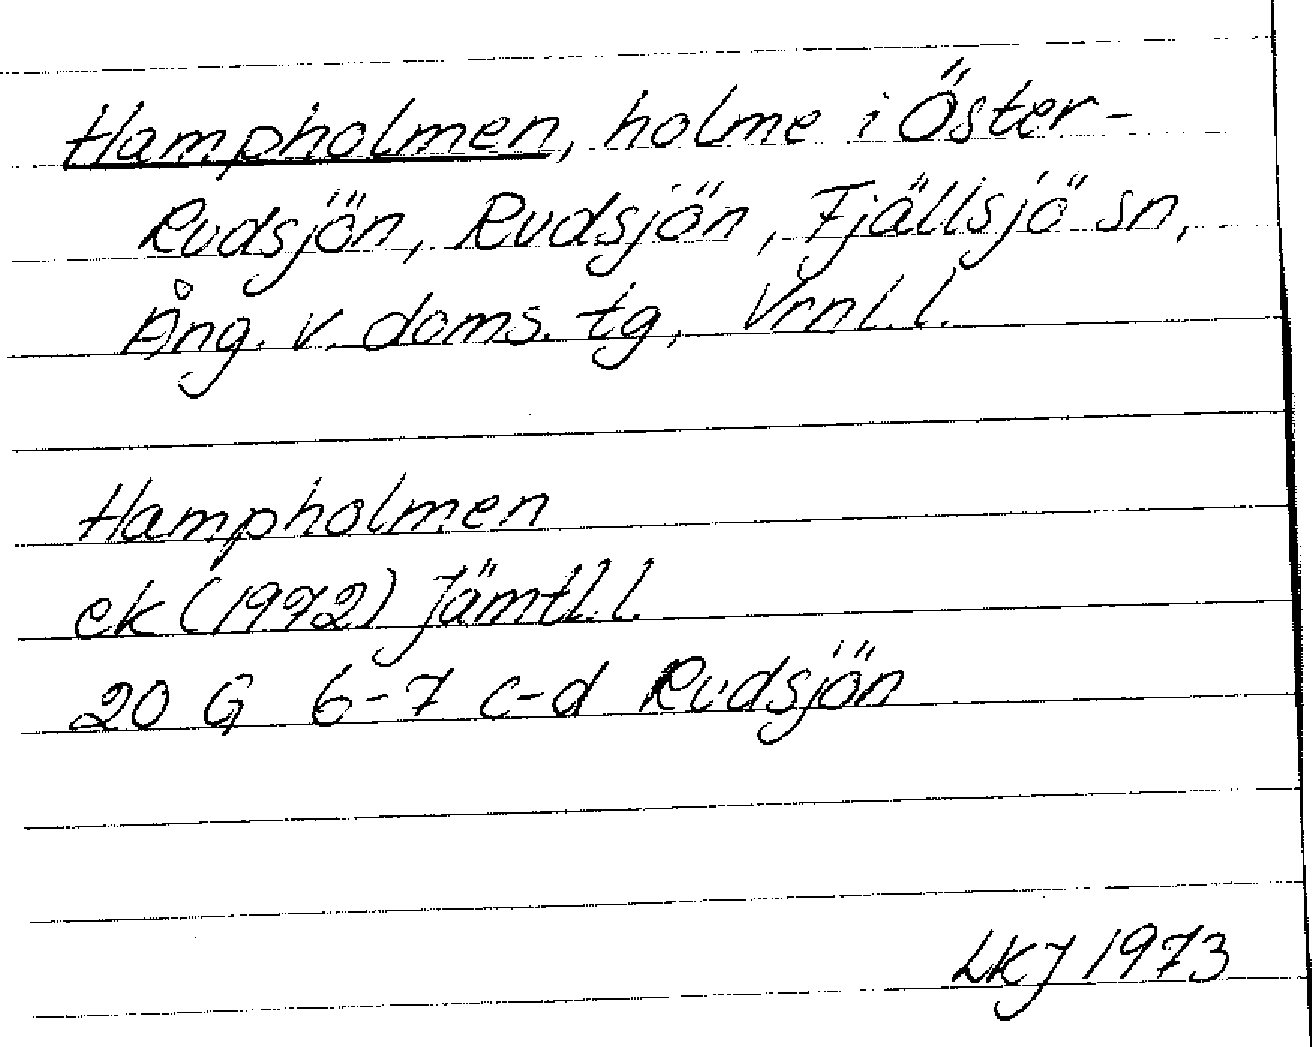 Hampholmen, holme i Öster-
Rudsjön, Rudsjön, Fjällsjö sn,
Ång. v. doms. tg, Vrnl. l.
Hampholmen
ek (1972) Jämtl. l.
20 G 6-7 c-d Rudsjön
LKJ 1973